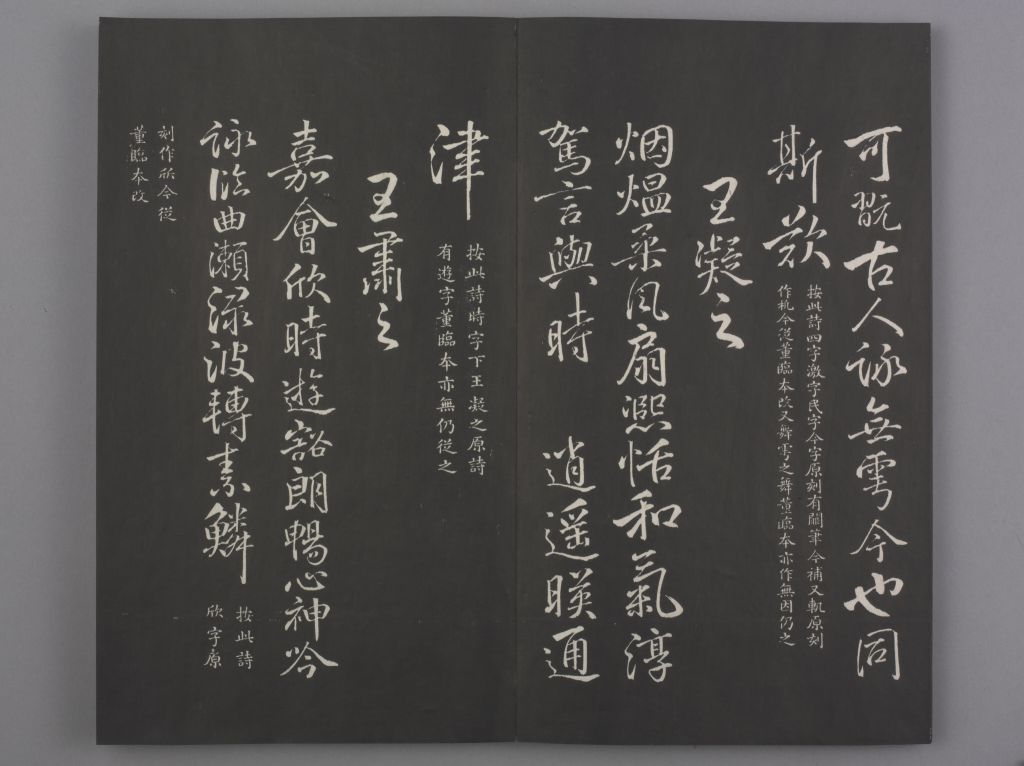 可翫古人詠無雩今也同
斯歎
按此詩四字激字民字今字原刻有闕筆今補又軌原刻
作札今從董臨本改又舞雩之舞董臨本亦作無因仍之
王凝之
烟熅柔風扇熙恬和氣淳
駕言與時 逍遥暎通
津
按此詩時字下王凝之原詩
有遊字董臨本亦無仍從之
王肅之
嘉會欣時遊豁朗暢心神吟
詠臨曲瀨渌波轉素鱗
按此詩
欣字原
刻作 今從
董臨本改